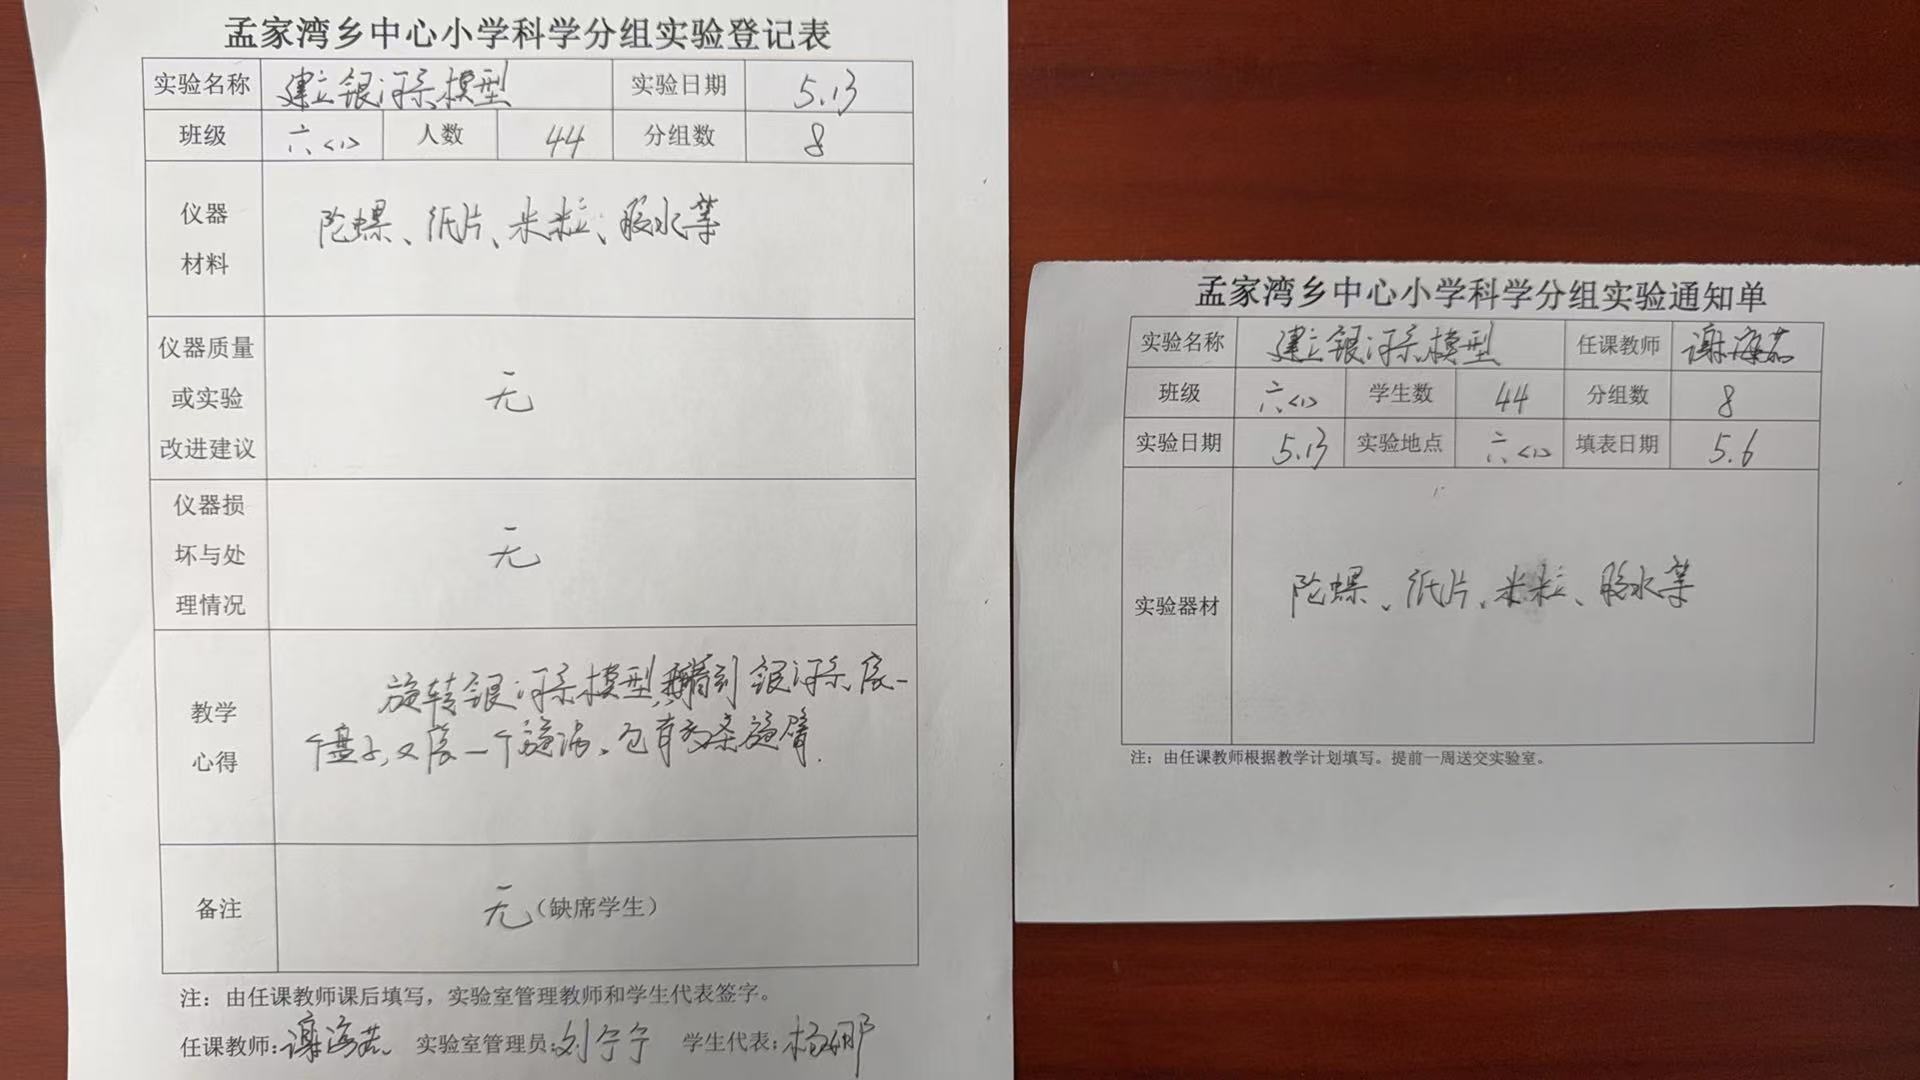 孟家湾乡中心小学科学分组实验登记表
实验名称 建立银河系模型 实验日期 5.13
班级 六<1> 人数 44 分组数 8
仪器
材料
陀螺、纸片、米粒、胶水等
仪器质量
或实验
改进建议
无
仪器损
坏与处
理情况
无
教学
心得
旋转银河系模型,看到银河系像一
个盘子,又像一个旋涡,它有多条旋臂.
备注 无(缺席学生)
注:由任课教师课后填写,实验室管理教师和学生代表签字。
任课教师:谢海茹 实验室管理员:刘宁宁 学生代表:杨娜
孟家湾乡中心小学科学分组实验通知单
实验名称 建立银河系模型 任课教师 谢海茹
班级 六<1> 学生数 44 分组数 8
实验日期 5.13 实验地点 六<1> 填表日期 5.6
实验器材 陀螺、纸片、米粒、胶水等
注:由任课教师根据教学计划填写。提前一周送交实验室。